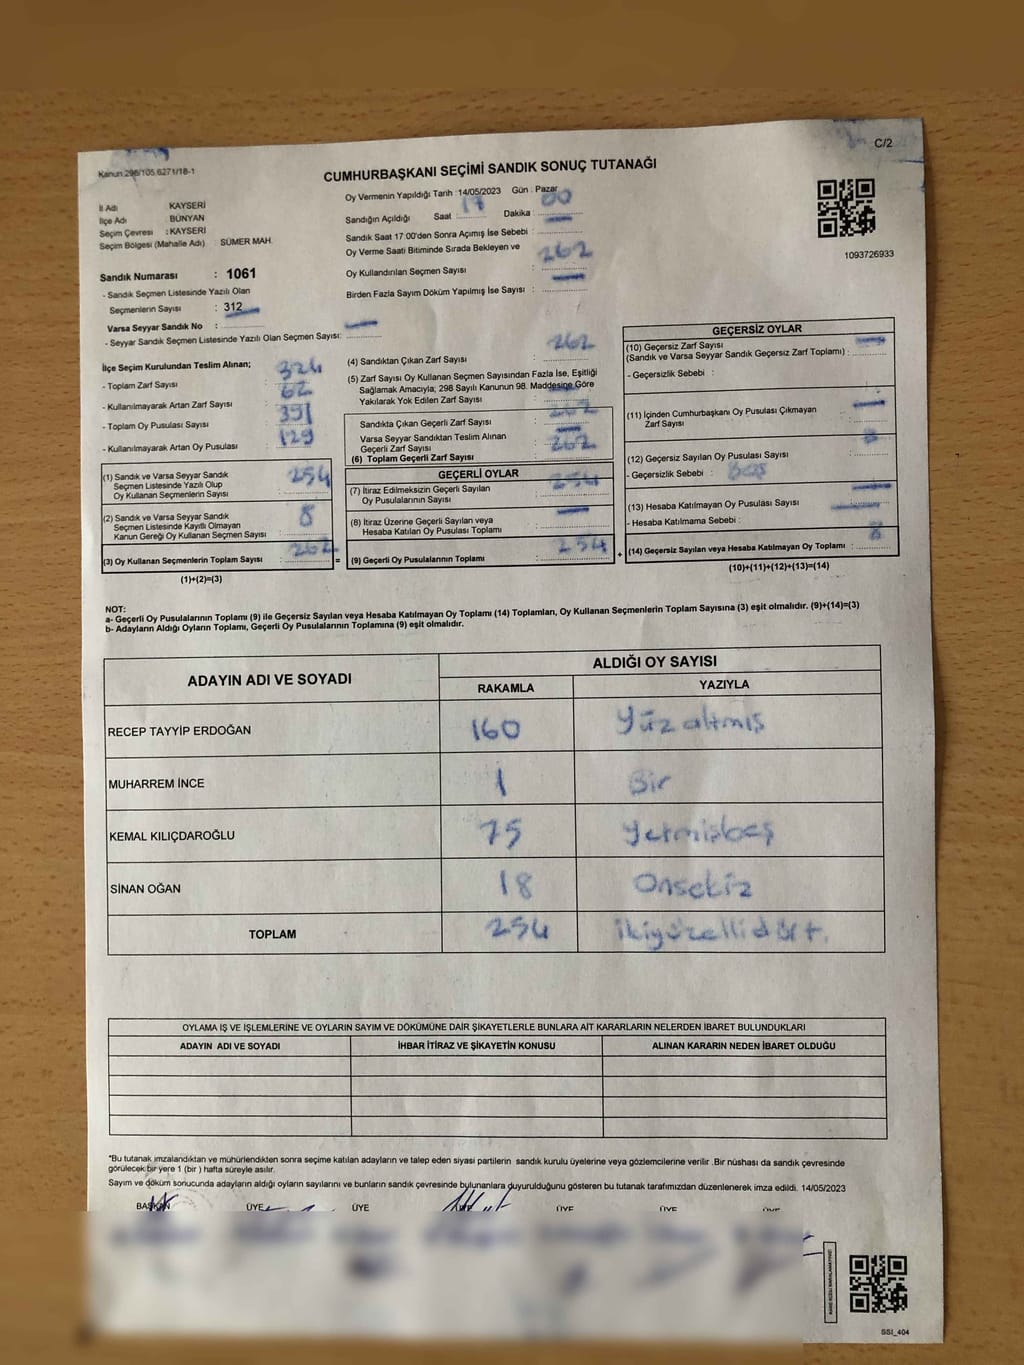 C/2
Kanun:298/105.6271/18-1
CUMHURBAŞKANI SEÇİMİ SANDIK SONUÇ TUTANAĞI
İl Adı KAYSERİ
İlçe Adı BÜNYAN
Seçim Çevresi : KAYSERİ
Seçim Bölgesi (Mahalle Adı) : SÜMER MAH.
Oy Vermenin Yapıldığı Tarih :14/05/2023 Gün : Pazar
Sandığın Açıldığı Saat : 17 Dakika : 00
Sandık Saat 17:00'den Sonra Açımış İse Sebebi :
Oy Verme Saati Bitiminde Sırada Bekleyen ve
Oy Kullandırılan Seçmen Sayısı : 262
Birden Fazla Sayım Döküm Yapılmış İse Sayısı :
1093726933
Sandık Numarası : 1061
- Sandık Seçmen Listesinde Yazılı Olan
Seçmenlerin Sayısı : 312
Varsa Seyyar Sandık No :
- Seyyar Sandık Seçmen Listesinde Yazılı Olan Seçmen Sayısı:
İlçe Seçim Kurulundan Teslim Alınan;
- Toplam Zarf Sayısı : 324
- Kullanılmayarak Artan Zarf Sayısı : 62
- Toplam Oy Pusulası Sayısı : 391
- Kullanılmayarak Artan Oy Pusulası : 129
(1) Sandık ve Varsa Seyyar Sandık
Seçmen Listesinde Yazılı Olup
Oy Kullanan Seçmenlerin Sayısı : 254
(2) Sandık ve Varsa Seyyar Sandık
Seçmen Listesinde Kayıtlı Olmayan
Kanun Gereği Oy Kullanan Seçmen Sayısı : 8
(3) Oy Kullanan Seçmenlerin Toplam Sayısı : 262
(1)+(2)=(3)
(4) Sandıktan Çıkan Zarf Sayısı : 262
(5) Zarf Sayısı Oy Kullanan Seçmen Sayısından Fazla İse, Eşitliği
Sağlamak Amacıyla; 298 Sayılı Kanunun 98. Maddesine Göre
Yakılarak Yok Edilen Zarf Sayısı :
Sandıkta Çıkan Geçerli Zarf Sayısı : 262
Varsa Seyyar Sandıktan Teslim Alınan
Geçerli Zarf Sayısı :
(6) Toplam Geçerli Zarf Sayısı : 262
GEÇERLİ OYLAR
(7) İtiraz Edilmeksizin Geçerli Sayılan
Oy Pusulalarının Sayısı : 254
(8) İtiraz Üzerine Geçerli Sayılan veya
Hesaba Katılan Oy Pusulası Toplamı :
= (9) Geçerli Oy Pusulalarının Toplamı : 254 +
GEÇERSİZ OYLAR
(10) Geçersiz Zarf Sayısı
(Sandık ve Varsa Seyyar Sandık Geçersiz Zarf Toplamı) :
- Geçersizlik Sebebi :
(11) İçinden Cumhurbaşkanı Oy Pusulası Çıkmayan
Zarf Sayısı :
(12) Geçersiz Sayılan Oy Pusulası Sayısı : 8
- Geçersizlik Sebebi : Boş
(13) Hesaba Katılmayan Oy Pusulası Sayısı :
- Hesaba Katılmama Sebebi :
(14) Geçersiz Sayılan veya Hesaba Katılmayan Oy Toplamı : 8
(10)+(11)+(12)+(13)=(14)
NOT:
a- Geçerli Oy Pusulalarının Toplamı (9) ile Geçersiz Sayılan veya Hesaba Katılmayan Oy Toplamı (14) Toplamları, Oy Kullanan Seçmenlerin Toplam Sayısına (3) eşit olmalıdır. (9)+(14)=(3)
b- Adayların Aldığı Oyların Toplamı, Geçerli Oy Pusulalarının Toplamına (9) eşit olmalıdır.
ADAYIN ADI VE SOYADI ALDIĞI OY SAYISI
RAKAMLA YAZIYLA
RECEP TAYYİP ERDOĞAN 160 Yüzaltmış
MUHARREM İNCE 1 Bir
KEMAL KILIÇDAROĞLU 75 Yetmişbeş
SİNAN OĞAN 18 Onsekiz
TOPLAM 254 İkiyüzellidört.
OYLAMA İŞ VE İŞLEMLERİNE VE OYLARIN SAYIM VE DÖKÜMÜNE DAİR ŞİKAYETLERLE BUNLARA AİT KARARLARIN NELERDEN İBARET BULUNDUKLARI
ADAYIN ADI VE SOYADI İHBAR İTİRAZ VE ŞİKAYETİN KONUSU ALINAN KARARIN NEDEN İBARET OLDUĞU
*Bu tutanak imzalandıktan ve mühürlendikten sonra seçime katılan adayların ve talep eden siyasi partilerin sandık kurulu üyelerine veya gözlemcilerine verilir .Bir nüshası da sandık çevresinde
görülecek bir yere 1 (bir ) hafta süreyle asılır.
Sayım ve döküm sonucunda adayların aldığı oyların sayılarını ve bunların sandık çevresinde bulunanlara duyurulduğunu gösteren bu tutanak tarafımızdan düzenlenerek imza edildi. 14/05/2023
BAŞKAN ÜYE ÜYE ÜYE ÜYE ÜYE ÜYE
SSI_404